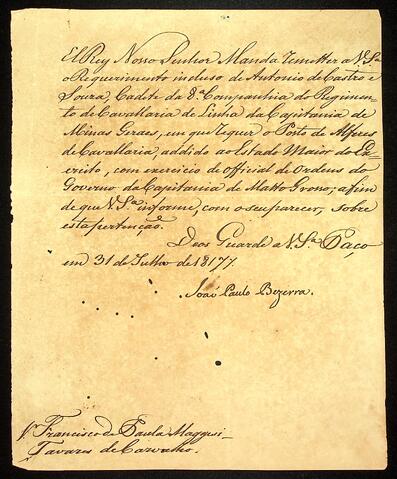 El Rey Nosso Senhor Manda remetter a V.Sa
o Requerimento incluso de Antonio de Castro e
Souza Cadete da 8.a Companhia do Regimen-
to de Cavallaria de Linha da Capitania de
Minas Geraes, em que requer o Posto de Alferes
de Cavallaria, addido ao Estado Maior do Ex-
ercito, com exercicio de official de Ordens do
Governo da Capitania de Matto Grosso; a fim
de que V.Sa informe, com o seu parecer, sobre
esta pertenção.
Deos Guarde a V.Sa Paço
em 31 de Julho de 1817
João Paulo Bezerra.
Francisco de Paula Maggesi
Tavares de Carvalho.